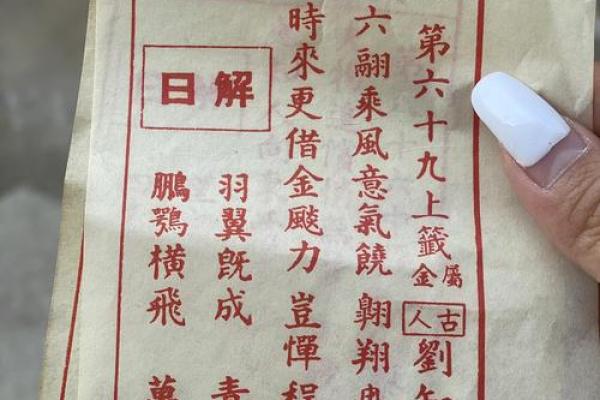 第六十九上籤 屬金 古人 劉
六翮乘風意氣饒 翺翔
時來更借金飈力 豈憚
解曰
羽翼既成
鵬鶚橫飛